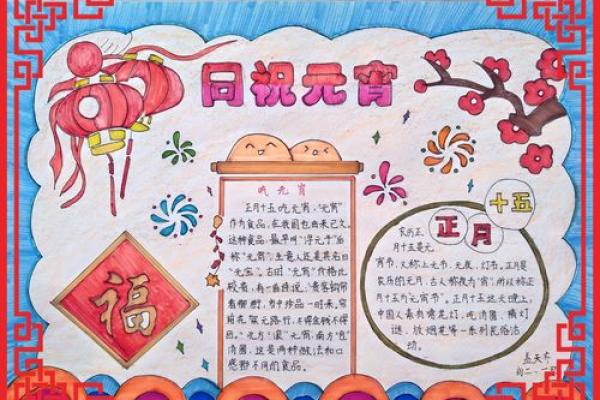 同祝元宵
吃元宵
正月十五吃元宵,“元宵”
作为食品,在我国也由来已久。
这种食品,最早叫“浮元子”后
称“元宵”,生意人还美其名曰
“元宝”。古时“元宵”价格比
较贵,有一首诗说:贵客钩帘
看御街,市中珍品一时来。帘
前花架无路行,不得金钱不得
回。”北方“滚”元宵,南方“包”
汤圆,这是两种做法和口
感都不同的食品。
福
正月
十五
农历正
月十五是元
宵节,又称上元节、元夜、灯节。正月是
农历的元月,古人称夜为“宵”,所以称正
月十五为元宵节”。正月十五这天晚上,
中国人素有赏花灯、吃汤圆、猜灯
谜、放烟花等一系列民俗活
动。